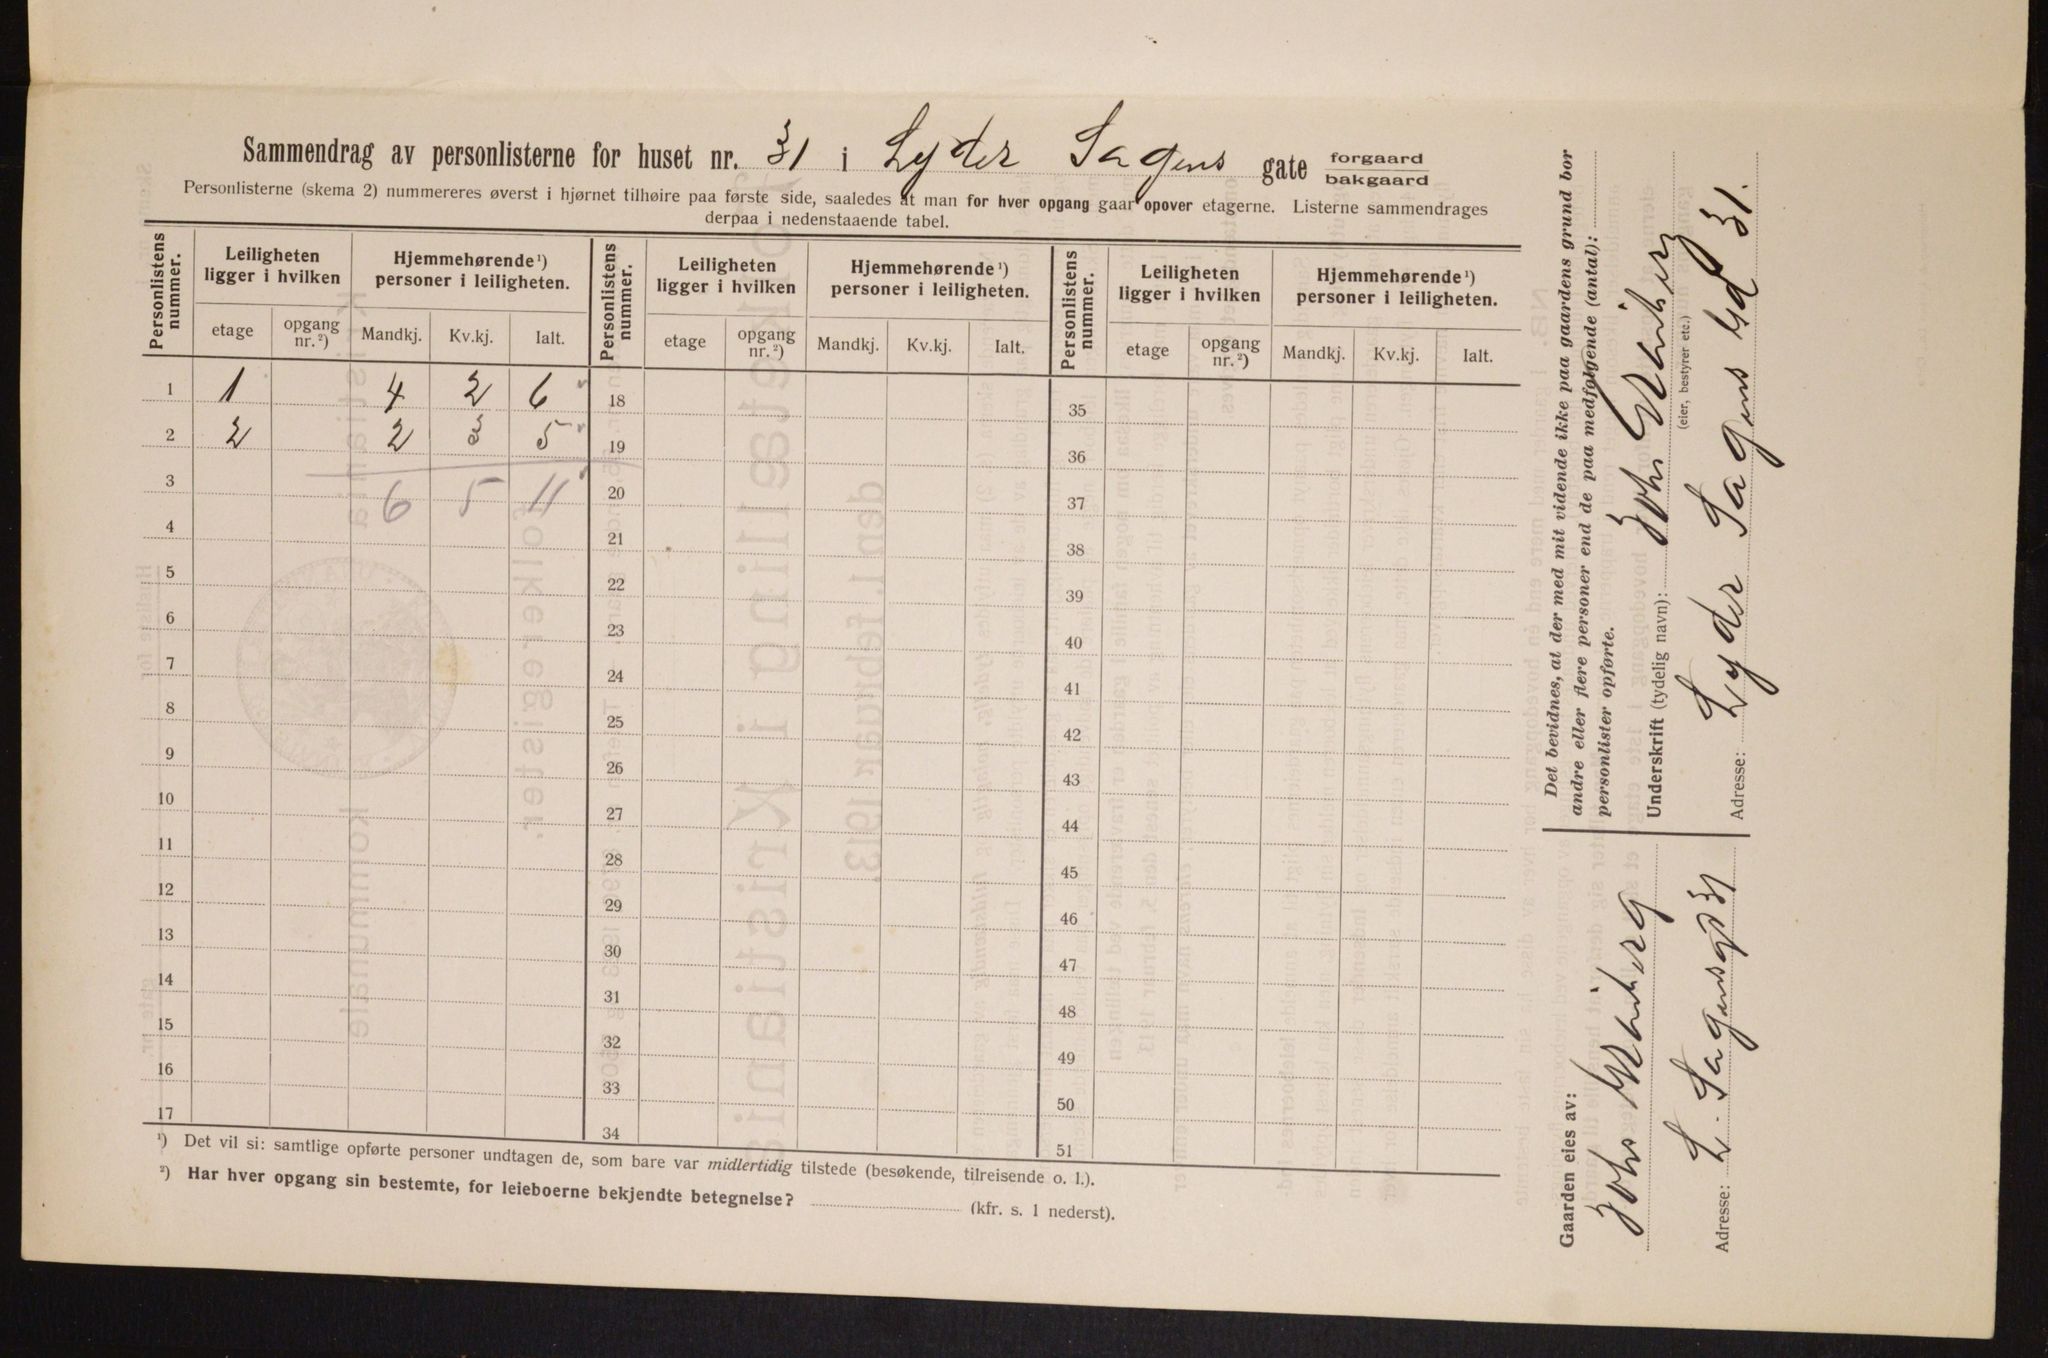 Sammendrag av personlisterne for huset nr. 31 i Lyder Sagens gate forgaard bakgaard
Personlisterne (skema 2) nummereres øverst i hjørnet tilhøire paa første side, saaledes at man for hver opgang gaar opover etagerne. Listerne sammendrages
derpaa i nedenstaaende tabel.
Personlistens nummer. Leiligheten ligger i hvilken Hjemmehørende ¹) personer i leiligheten. Personlistens nummer. Leiligheten ligger i hvilken Hjemmehørende ¹) personer i leiligheten. Personlistens nummer. Leiligheten ligger i hvilken Hjemmehørende ¹) personer i leiligheten.
etage opgang nr. ²) Mandkj. Kv.kj. Ialt. etage opgang nr. ²) Mandkj. Kv.kj. Ialt. etage opgang nr. ²) Mandkj. Kv.kj. Ialt.
1 1 4 2 6 18 35
2 2 2 3 5 19 36
3 6 5 11 20 37
4 21 38
5 22 39
6 23 40
7 24 41
8 25 42
9 26 43
10 27 44
11 28 45
12 29 46
13 30 47
14 31 48
15 32 49
16 33 50
17 34 51
¹) Det vil si: samtlige opførte personer undtagen de, som bare var midlertidig tilstede (besøkende, tilreisende o. l.).
²) Har hver opgang sin bestemte, for leieboerne bekjendte betegnelse? (kfr. s. 1 nederst).
Det bevidnes, at der med mit vidende ikke paa gaardens grund bor
andre eller flere personer end de paa medfølgende (antal):
personlister opførte.
Underskrift (tydelig navn): Johs
(eier, bestyrer etc.)
Adresse: Lyder Sagens Gd 31.
Gaarden eies av:
Johs
Adresse: L. Sagensgd 31